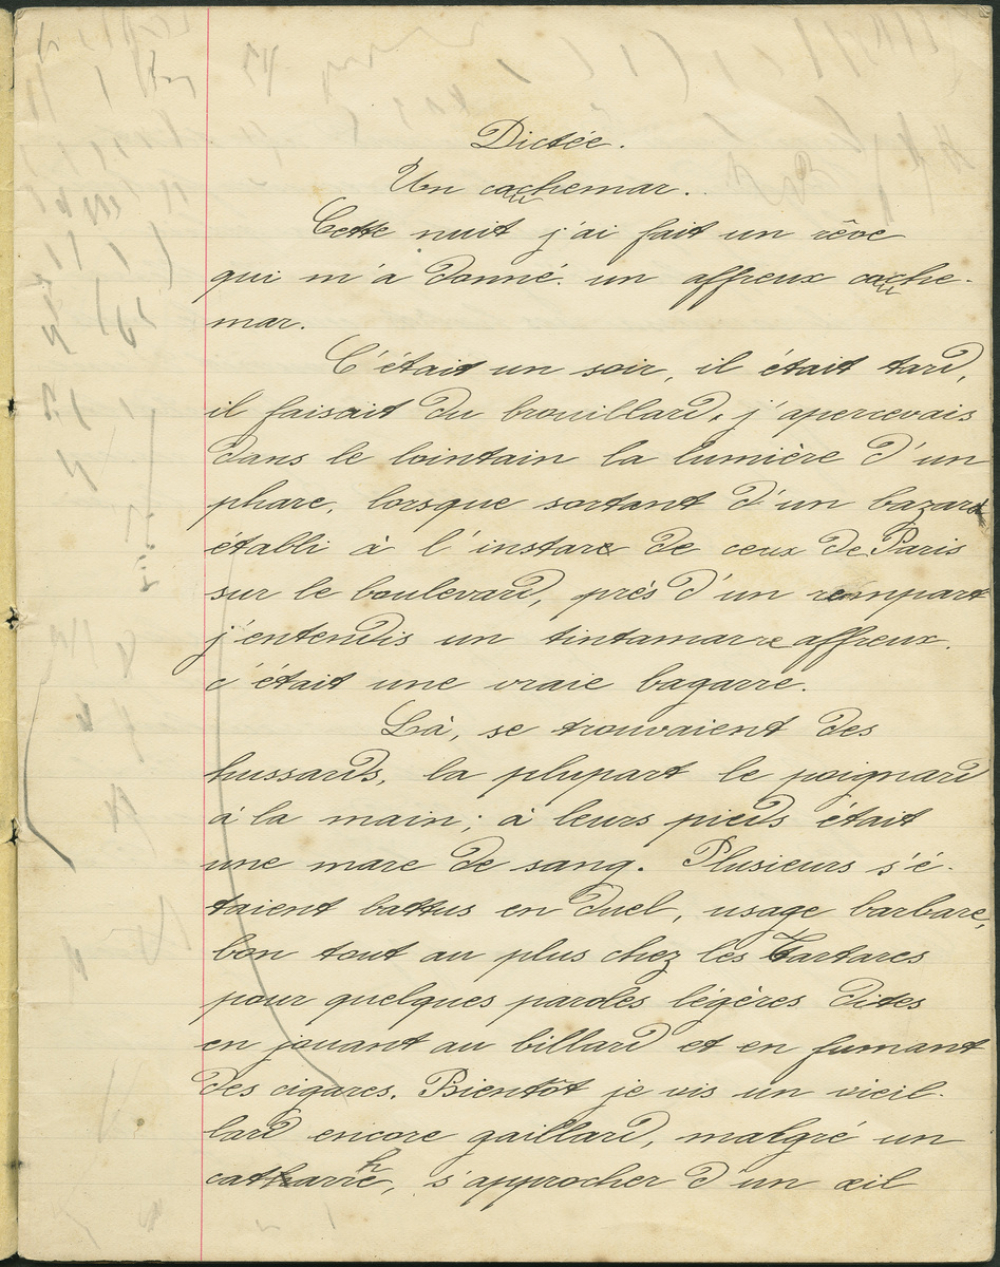 Dictée.
Un cauchemar.
Cette nuit j'ai fait un rêve
qui m'a donné un affreux cauche-
mar.
C'était un soir, il était tard,
il faisait du brouillard, j'apercevais
dans le lointain la lumière d'un
phare, lorsque sortant d'un bazar
établi à l'instar de ceux de Paris
sur le boulevard, près d'un rempart
j'entendis un tintamarre affreux.
c'était une vraie bagarre.
Là, se trouvaient des
hussards, la plupart le poignard
à la main; à leurs pieds était
une mare de sang. Plusieurs s'é-
taient battus en duel, usage barbare,
bon tout au plus chez les Tartares
pour quelques paroles légères dites
en jouant au billard et en fumant
des cigares. Bientôt je vis un vieil-
lard encore gaillard, malgré un
catarrhe, s'approcher d'un œil